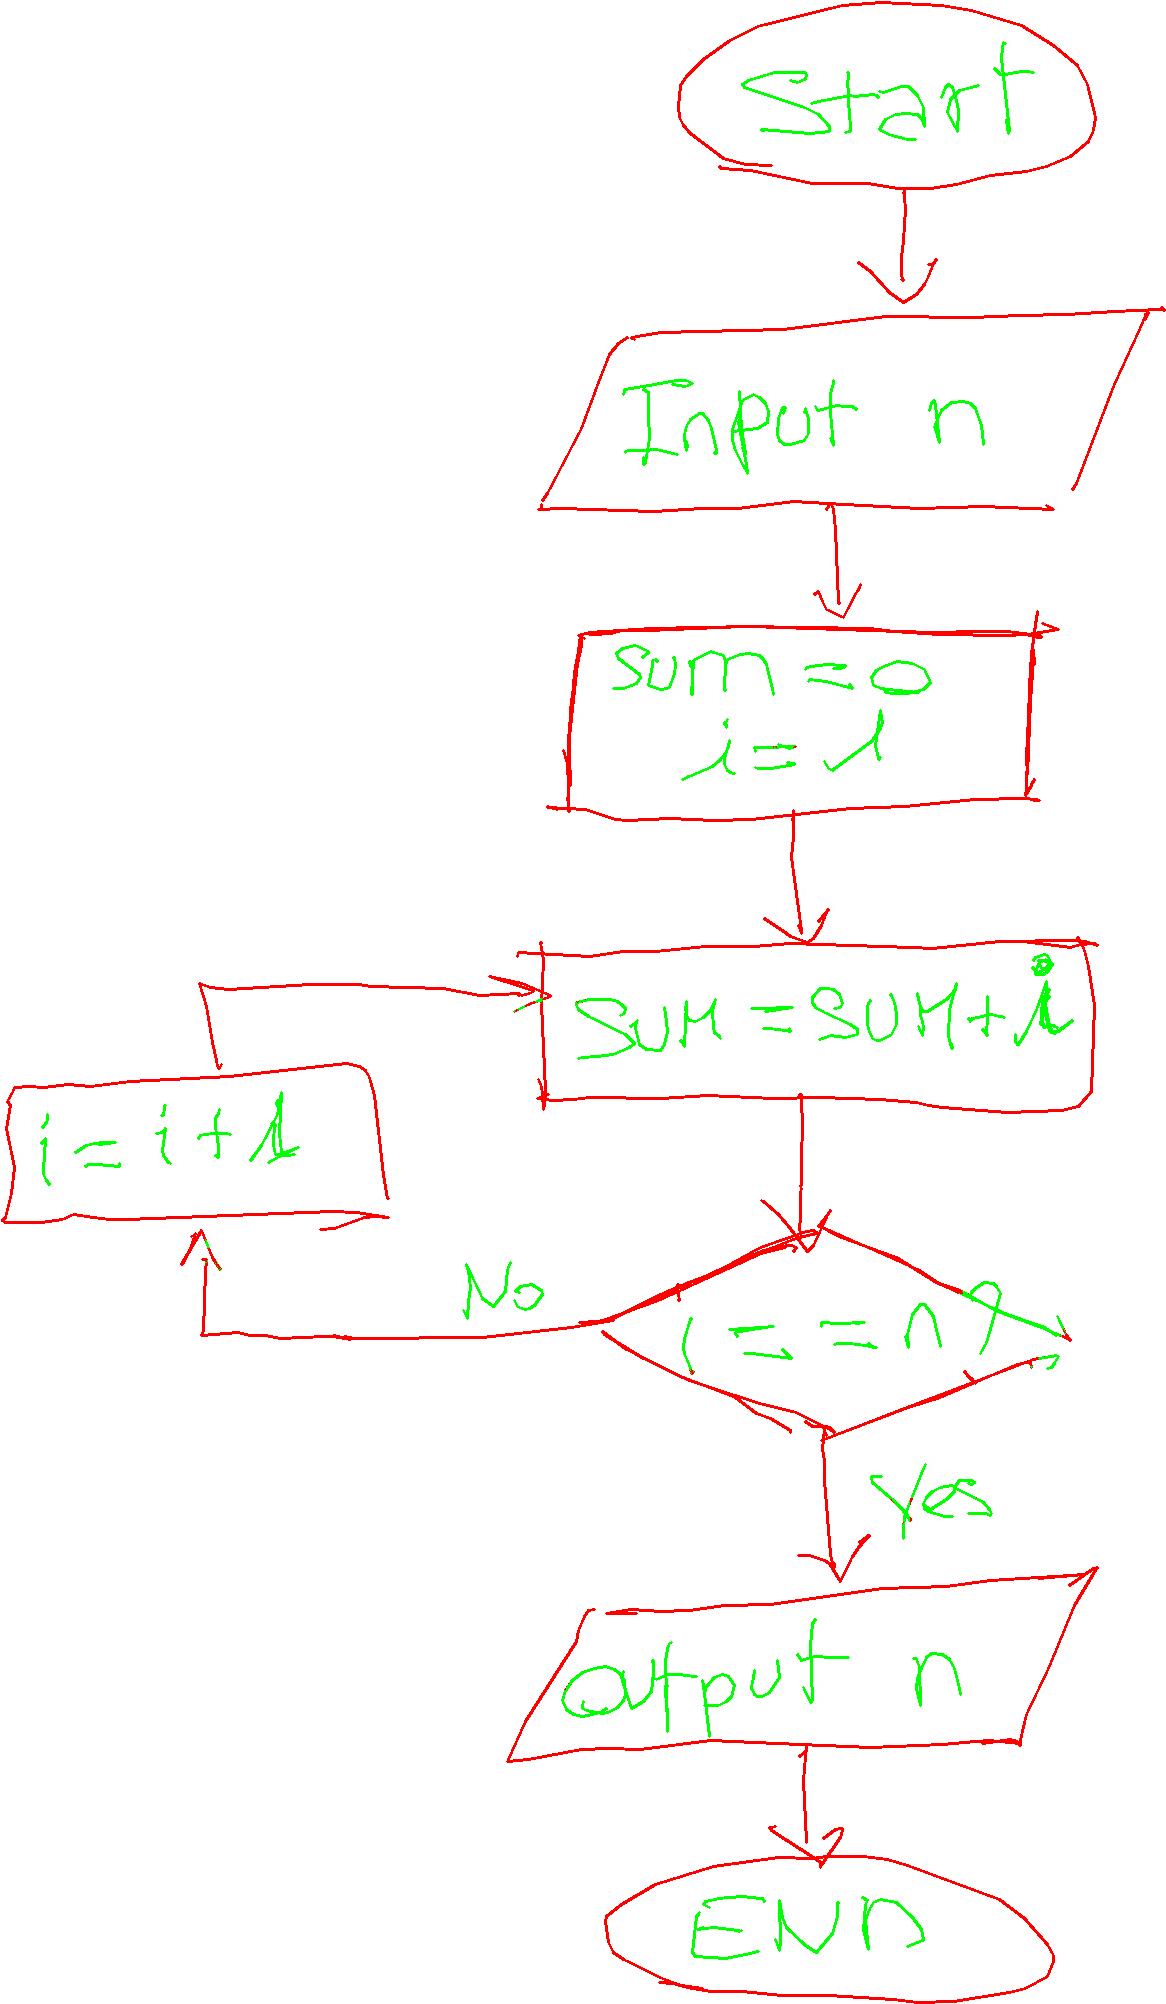 Start
Input n
sum = 0
i = 1
SUM = SUM + i
i = i + 1
No
i = = n ?
Yes
output n
END